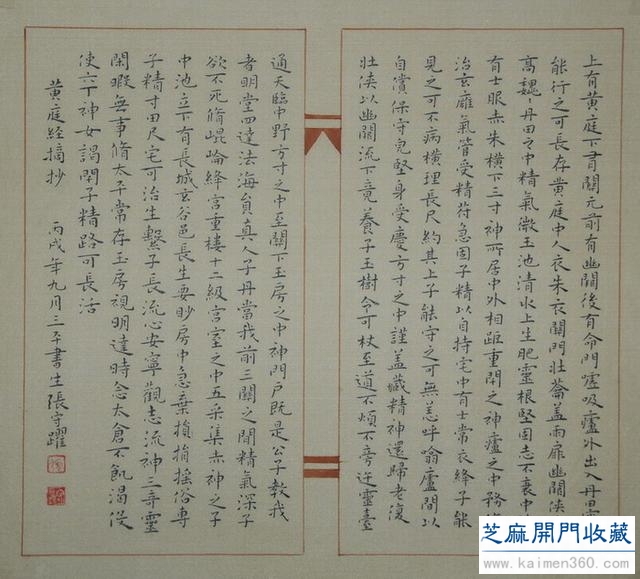 上有黄庭下有關元前有幽闕後有命門嘘吸廬外出入丹田
能行之可長存黄庭中人衣朱衣關門壯蘥蓋兩扉幽闕俠
高魏〻丹田之中精氣微玉池清水上生肥靈根堅固志不衰中
有士服赤朱横下三寸神所居中外相距重閉之神廬之中務
治玄廱氣管受精苻急固子精以自持宅中有士常衣絳子能
見之可不病横理長尺約其上子能守之可無恙呼噏廬間以
自償保守完堅身受慶方寸之中謹蓋藏精神還歸老復
壯俠以幽闕流下竟養子玉樹令可杖至道不煩不旁迕靈臺
通天臨中野方寸之中至關下玉房之中神門户既是公子教我
者明堂四達法海員真人子丹當我前三關之間精氣深子
欲不死脩崐崘絳宫重樓十二級宫室之中五采集赤神之子
中池立下有長城玄谷邑長生要眇房中急棄捐摇俗專
子精寸田尺宅可治生繫子長流心安寧觀志流神三奇靈
閑暇無事脩太平常存玉房視明達時念太倉不飢渴役
使六丁神女謁閉子精路可長活
黄庭经摘抄
丙戌年九月三平書生張守躍
芝麻開門收藏
www.kaimen360.com